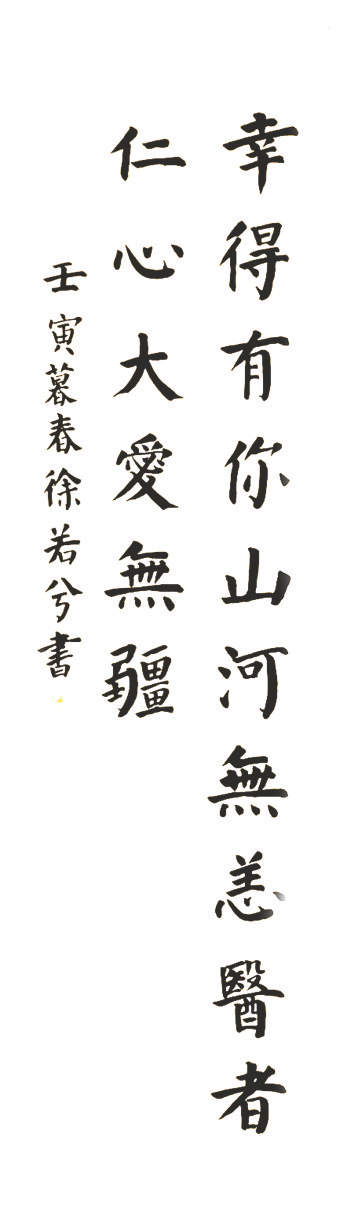 幸得有你山河無恙醫者
仁心大愛無疆
壬寅暮春徐若兮書